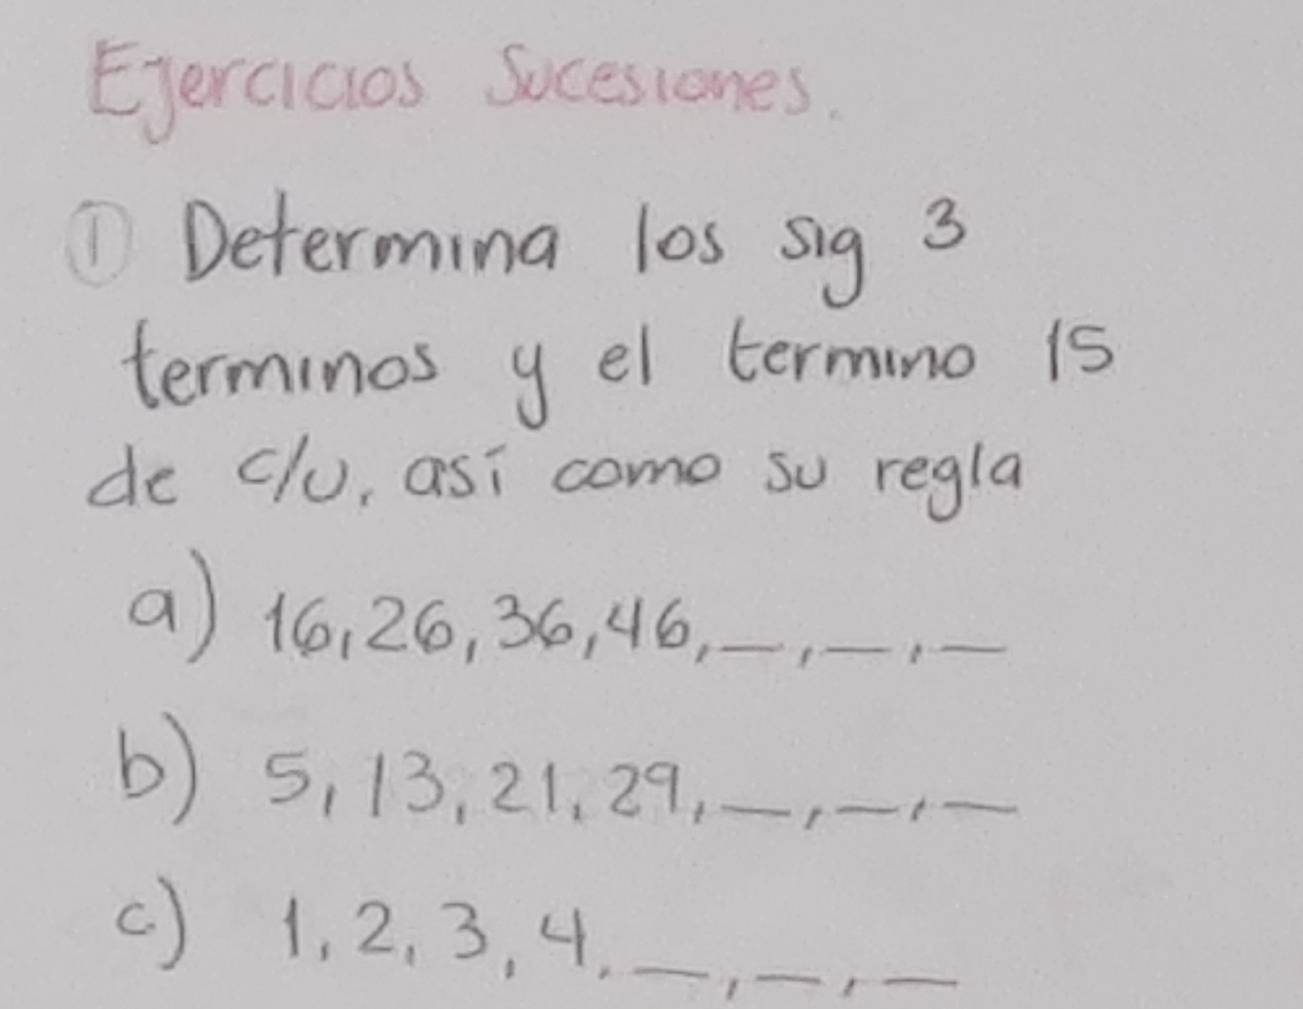 Ejercicios Sucesiones.
① Determina los sig 3
terminos y el termino 15
de c/u, así como su regla
a) 16, 26, 36, 46, __, __, __
b) 5, 13, 21, 29, __, __, __
c) 1, 2, 3, 4, __, __, __